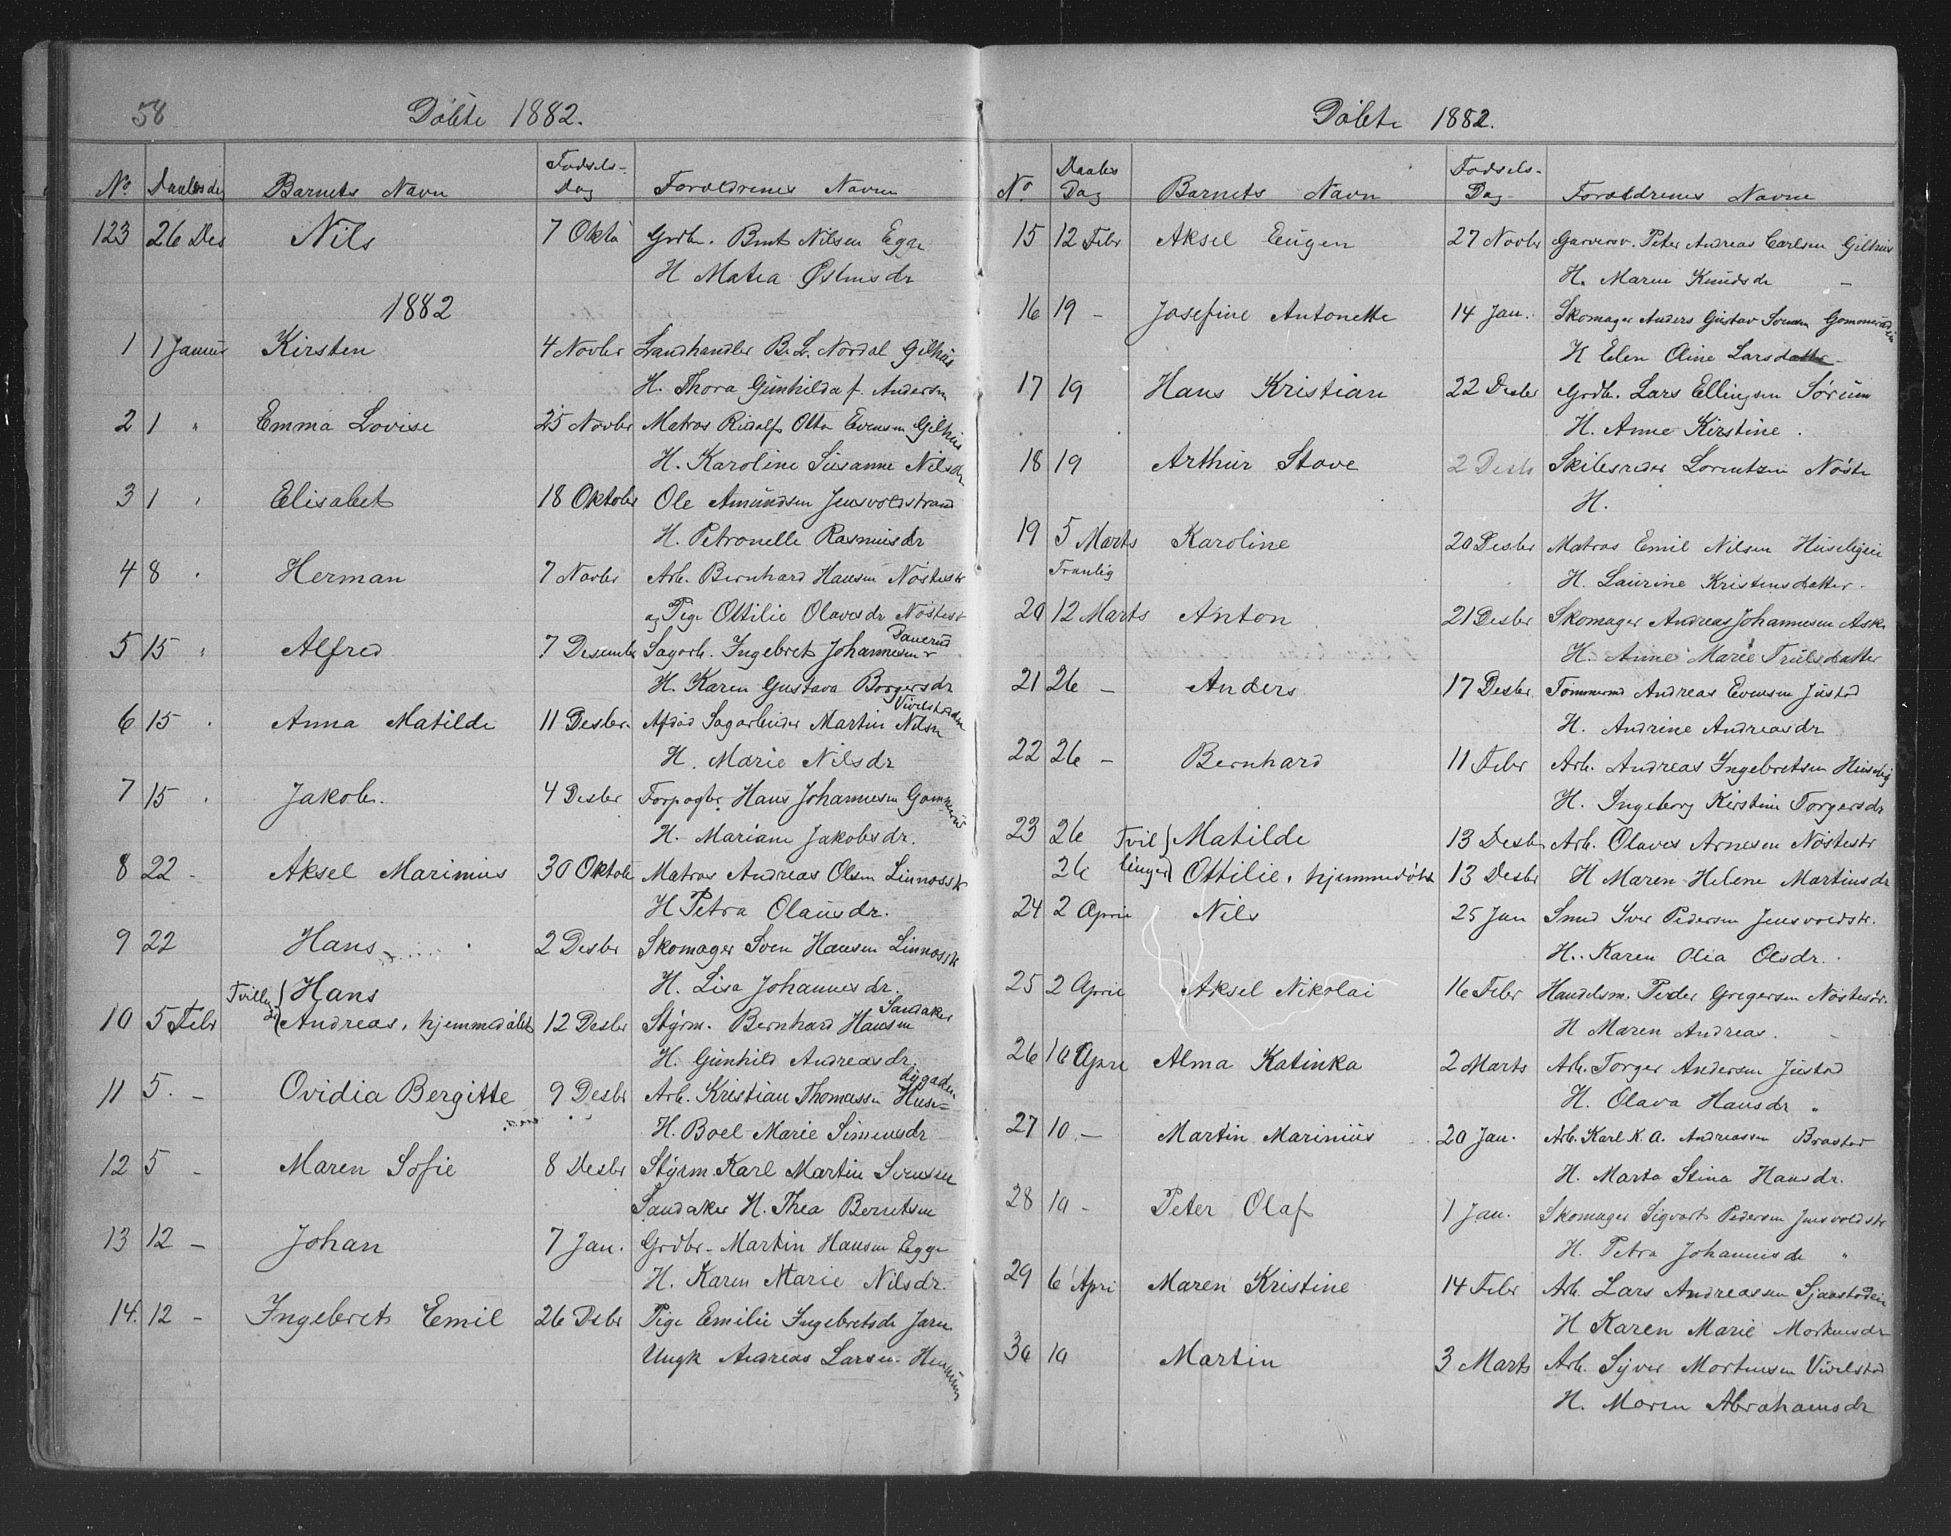 58 Döbte 1882.
No Daabsdag Barnets Navn Fødsels-Dag Forældrenes Navne
123 26 Des Nils 7 Okto Grdbr. Bernt Nilsen Egge
H Matea Østensdr
1882
1 1 Januar Kirsten 4 Novbr Landhandler B. L. Nordal Gilhus
H. Thora Gunhilda f. Andersen
2 1 " Emma Lovise 25 Novbr Matros Rudolf Otto Evensen Gilhus
H. Karoline Susanne Nilsdr
3 1 " Elisabet 18 Oktobr Ole Amundsen Jensvoldstrand
H. Petronelle Rasmusdr
4 8 " Herman 7 Novbr Arb. Bernhard Hansen Nøstestr
og Pige Ottilie Olavesdr Nøstestr
5 15 " Alfred 7 Desember Sagarb. Ingebret Johannesen
H. Karen Gustava Borgersdr
6 15 " Anna Matilde 11 Desbr. Afdød Sagarbeider Martin Nilsen Vivelstaden
H. Marie Nilsdr
7 15 " Jakob. 4 Desbr Forpagter Hans Johannesen Gommerud
H. Mariane Jakobsdr.
8 22 - Aksel Marinius 30 Oktobr Matros Andreas Olsen Linnesstr
H Petra Olausdr.
9 22 Hans 2 Desbr Skomager Sven Hansen Linnesstr
H. Lisa Johannesdr.
Tvillinger Hans
10 5 Febr Andreas, hjemmedøbt 12 Desbr Styrm. Bernhard Hansen Sandaker
H. Gunhild Andreasdr.
11 5. - Ovidia Bergitte 9 Desbr Arb. Kristian Thomassen Husebygaden
H. Boel Marie Simensdr
12 5 - Maren Sofie 8 Desbr Styrm. Karl Martin Svensen
Sandaker H. Thea Berntsen
13 12 - Johan 7 Jan. Grdbr- Martin Hansen Egge
H. Karen Marie Nilsdr.
14. 12 - Ingebret Emil 26 Desbr Pige Emilie Ingebretsdr
Ungk Andreas Larsen
Döbte 1882.
No. Daabs Dag Barnets Navn Fødsels-Dag Forældrenes Navne
15 12 Febr Aksel Eugen 27 Novbr Garversv. Peter Andreas Carlsen Gilhus
H. Maren Knudsdr -
16 19 - Josefine Antonette 14 Jan. Skomager Anders Gustav Svensen
H Elen Oline Larsdatter
17 19 Hans Kristian 22 Desbr Grdb. Lars Ellingsen Sørum
H. Anne Kirstine.
18 19 Arthur Stove 2 Desb Skibsreder Lorentzen Nøste
H.
19 5 Marts Karoline 20 Desbr Matros Emil Nilsen Husebyeie
Tranby H. Laurine Kristensdatter
20 12 Marts Anton 21 Desbr Skomager Andreas Johannesen Ask
H. Anne Marie Trulsdatter
21 26 - Anders 17 Desbr Tømmermd Andreas Evensen Justad
H. Andrine Andreasdr
22 26 - Bernhard 11 Febr Arb. Andreas Ingebretsen Huseby
H. Ingeborg Kirstine Torgersdr
23 26 Tvil Matilde 13 Desb Arb. Olaves Arnesen Nøstestr
26 linger Ottilie, hjemmedøbt 13 Desbr H Maren Helene Martinsdr
24 2 April Nils 25 Jan Smed Iver Pedersen Jensvoldstr.
H. Karen Olia Olsdr.
25 2 April Aksel Nikolai 16 Febr Handelsm. Peder Gregersen Nøstestr.
H Maren Andreas.
26 10 April Alma Katinka 2 Marts Arb. Torger Andersen Justad
H. Olava Hansdr "
27 10 - Martin Marinius 20 Jan. Arb. Karl K. A. Andreassen Brastad
H. Marta Stina Hansdr.
28 10 - Peter Olaf 1 Jan. Skomager Sigvart Pedersen Jensvoldstr
H. Petra Johannesdr "
29 6 April Maren Kristine 14 Febr Arb. Lars Andreassen Sjaastadeie
H Karen Marie Morkensdr
30 10 Martin 3 Marts Arb. Syver Mortensen Vivelstad
H. Maren Abrahamsdr